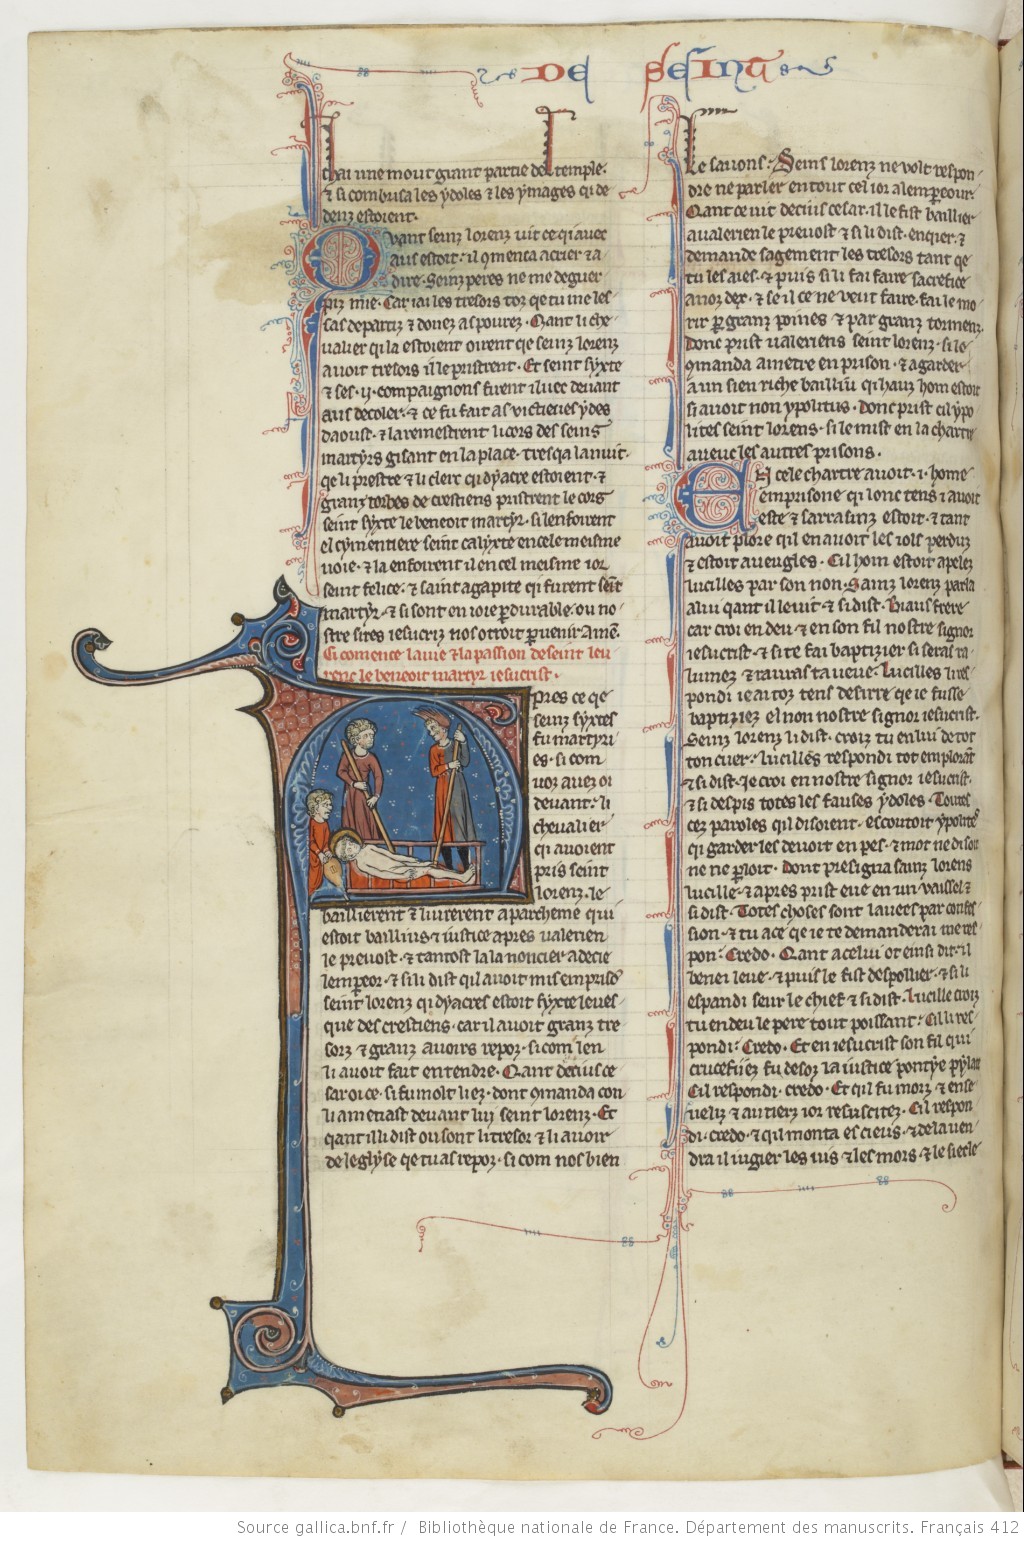 DE SEINT
chai une mout grant partie del temple.
& si combrusa les ydoles & les ymages qi de
denz estoient.
Quant seinz lorenz vit ce qi avec
aus estoit: il qmenca a crier & a
dire. Seinz peres ne me deguer
piz mie. Car iai les tresors toz qe tu me les
sas departiz & donez as povrez. Qant li che
valier qi la estoient oirent qe seinz lorenz
avoit tresors il le pristrent. Et seint syxte
& ses .ii. compaignons furent iluec devant
aus decoler. & ce fu fait as victieves ydes
daoust. & la remestrent li cors des seinz
martyrs gisant en la place. tresqa la nuit.
qe li prestre & li clerc qi dyacre estoient. &
granz torbes de crestiens pristrent le cors
seint syxte le beneoit martyr. si lenfoirent
el cymentiere seint calyxte en cele meisme
voie. & la enfoirent il en cel meisme ior
seint felice. & saint agapite qi furent seit
martyr. & si sont en ioie pdurable. ou no
stre sires iesucriz nos otroit pvenir Amē.
Ci comence la vie & la passion de seint leu
renc le beneoit martyr iesucrist.
Pres ce qe
seinz syxtes
fu martyri
es. si com
voz avez oi
devant: li
chevalier
qi avoient
pris seint
lorenz. le
baillierent & livrerent a parchemé qui
estoit baillius & iustice apres valerien
le prevost. & tantost la la noncier a decie
lempeor. & si li dist qil avoit mis em priso
seint lorenz qi dyacres estoit syxte leves
que des crestiens. car il avoit granz tre
sorz & granz avoirs repoz. si com len
li avoit fait entendre. Qant decius ce
sar oi ce. si fu molt liez. dont qmanda con
li amenast devant lui seint lorenz. Et
qant il li dist ou sont li tresor & li avoir
de leglyse qe tu as repoz. si com nos bien
le savons: Seins lorenz ne volt respon
dre ne parler en tout cel ior a lempeour.
Qant ce vit decius cesar. il le fist baillier
a valerien le prevost & si li dist. enqier. &
demande sagement les tresors tant qe
tu les aies. & puis si li fai faire sacrefice
a noz dex. & se il ce ne veut faire. fai le mo
rir p granz poines & par granz tormenz.
Donc prist valeriens seint lorenz. si le
qmanda a metre en prison. & a garder
a un sien riche bailliu qi hauz hom estoit
si avoit non ypolitus. Donc prist cil ypo
lites seint lorens. si le mist en la chartre
aveuc les autres prisons.
En cele chartre avoit .i. home
emprisone qi lonc tens i avoit
este & sarrasinz estoit. & tant
avoit plore qil en avoit les iols perduz
& estoit aveugles. Cil hom estoit apelez
lucilles par son non. Sainz lorenz parla
a lui qant il le vit & si dist. Biaus frere
car croi en deu & en son fil nostre signor
iesucrist. & si te fai baptizier si seras ra
lumez & ravras ta veue. Lucilles li res
pondi ie ai toz tens desirre qe ie fusse
baptiziez el non nostre signor iesucrist.
Seinz lorenz li dist. croiz tu en lui de tot
ton cuer. Lucilles respondi tot em plorāt
& si dist. Je croi en nostre signor iesucrist.
& si despis totes les fauses ydoles. Toutes
cez paroles qil disoient. escoutoit ypolites
qi garder les devoit en pes. & mot ne disoit
ne ne ploit. Dont presigna sainz lorens
lucille. & apres prist eve en un vaissel &
si dist. Totes choses sont lavees par confes
sion. & tu a ce qe ie te demanderai me res
pon. Credo. Qant a celui ot einsi dit. il
benei leve. & puis le fist despollier. & si li
espandi seur le chief & si dist. Lucille croiz
tu en deu le pere tout poissant: Cil li res
pondi: Credo. Et en iesucrist son fil qui
crucefiiez fu desoz la iustice pontye pylate
Cil respondi. credo. Et qil fu morz & ense
veliz & au tierz ior resuscitez. Cil respon
di. credo. & qil monta es cieus. & de la ven
dra il iugier les vis & les mors. & le siecle
Source gallica.bnf.fr / Bibliothèque nationale de France. Département des manuscrits. Français 412